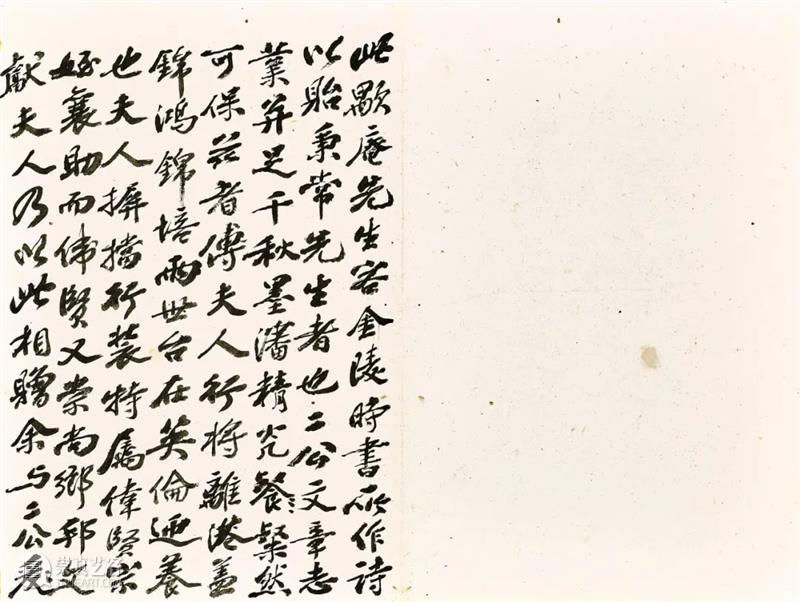 此庵先生客金陵時書所作詩
以貽秉常先生者也二公文章志
業并足千秋墨瀋精光粲然
可保茲者傅夫人行將離港蓋
錦鴻錦培兩世台在英倫迎養
也夫人摒擋行裝特屬偉賢宗
姪襄助而偉賢又崇尚鄉邦文
獻夫人乃以此相贈余与二公
崇真艺客